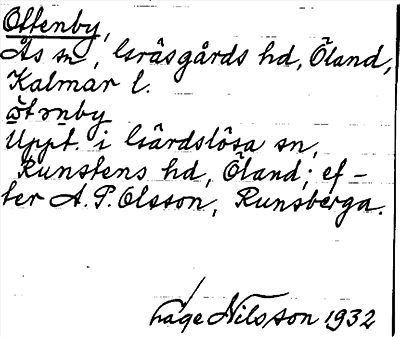 Ottenby,
Ås sn, Gräsgårds hd, Öland,
Kalmar l.
ɷ̄tənby
Uppt. i Gärdslösa sn,
Runstens hd, Öland; ef-
ter A. P. Olsson, Runsberga.
Tage Nilsson 1932